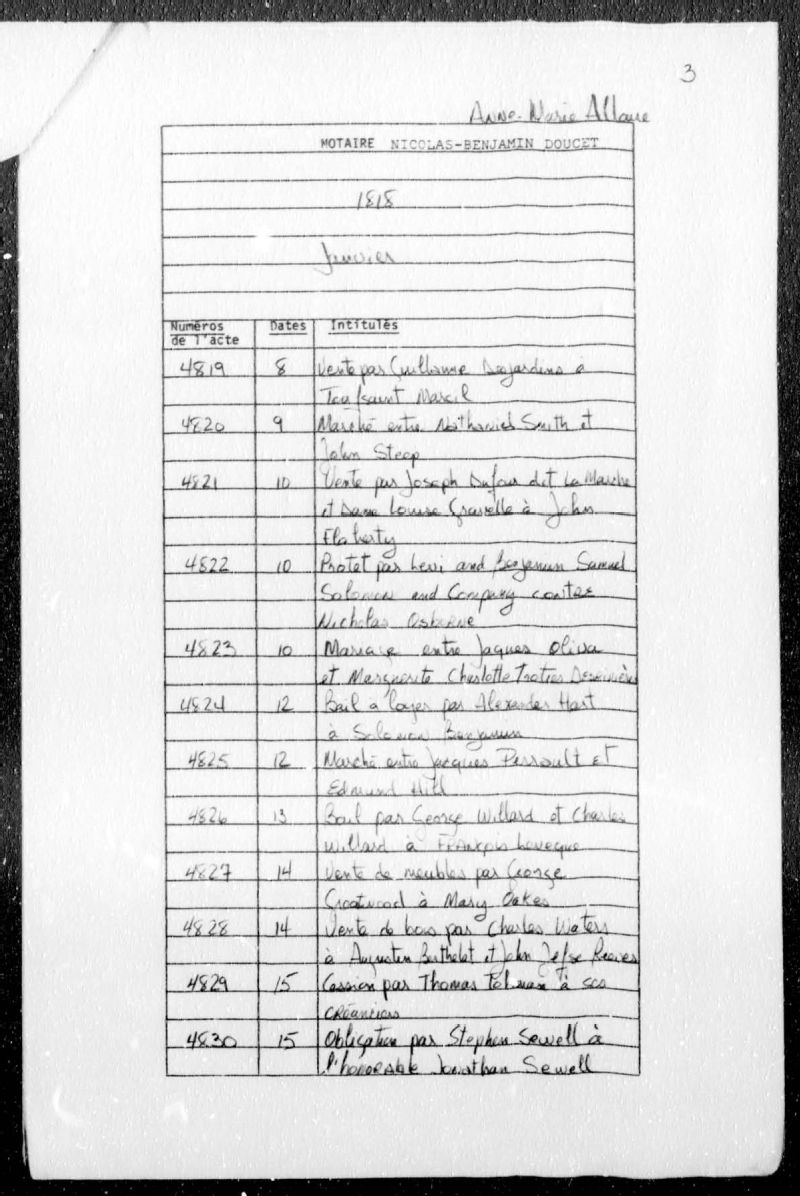 3
Anne-Marie Allaire
NOTAIRE NICOLAS-BENJAMIN DOUCET
1818
Janvier
Numéros de l'acte Dates Intitulés
4819 8 Vente par Guillaume Desjardins à
Toussaint Marcil
4820 9 Marché entre Nathaniel Smith et
John Steep
4821 10 Vente par Joseph Dufour dit La Marche
et Dame Louise Gravelle à John
Flaherty
4822 10 Protet par Levi and Benjamin Samuel
Solomon and Company contre
Nicholas Osborne
4823 10 Mariage entre Jaques Oliva
et Marguerite Charlotte Trotier Desrivières
4824 12 Bail à loyer par Alexander Hart
à Solomon Benjamin
4825 12 Marché entre Jacques Perrault et
Edmund Hill
4826 13 Bail par George Willard et Charles
Willard à François Leveque
4827 14 Vente de meubles par George
Grootwood à Mary Oakes
4828 14 Vente de bois par Charles Waters
à Augustin Berthelet et John Jesse Reeves
4829 15 Cession par Thomas à ses
créanciers
4830 15 Obligation par Stephen Sewell à
l'honorable Jonathan Sewell